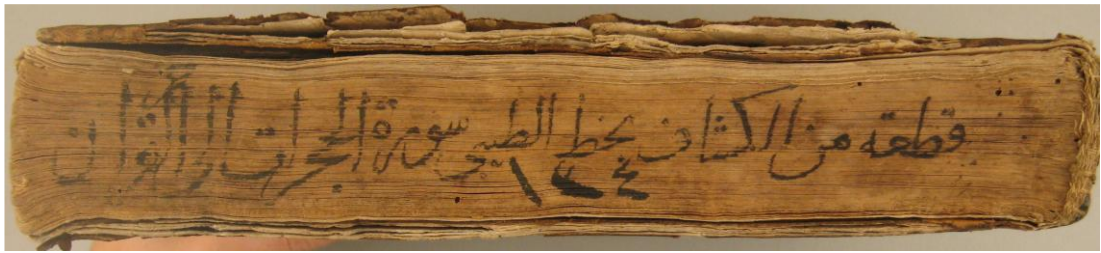 قطعة من الكشاف بخط الطيبي سورة الحجرات الى القران